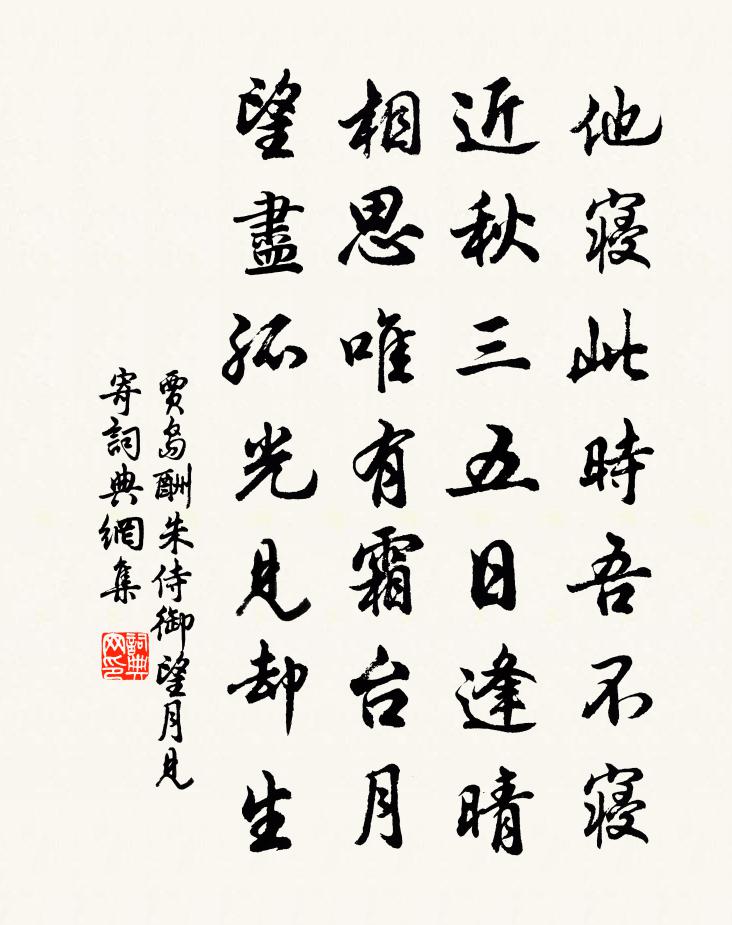 他寢此時吾不寢
近秋三五日逢晴
相思唯有霜台月
望盡孤光見却生
賈島酬朱侍御望月見
寄詞典網集
詞典
网印